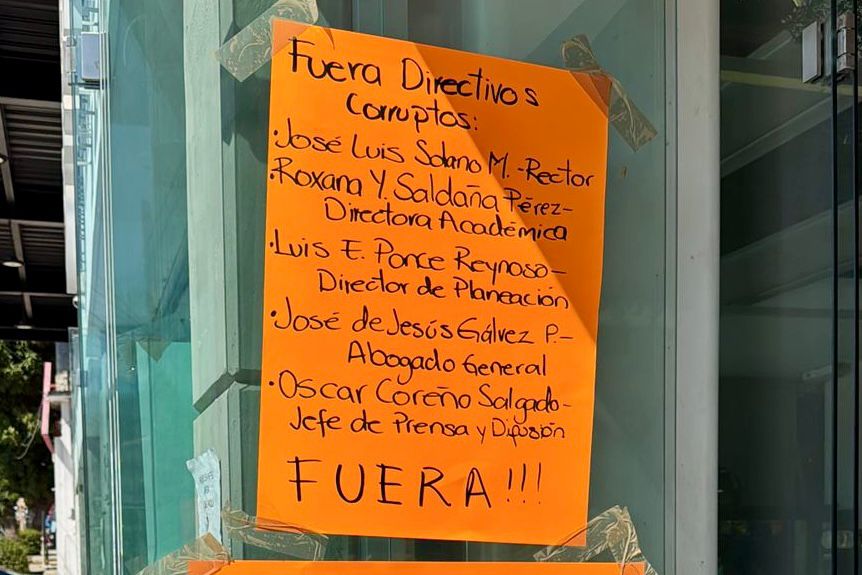 Fuera Directivos
Corruptos:
•José Luis Solano M. -Rector
•Roxana Y. Saldaña Pérez-
Directora Académica
•Luis E. Ponce Reynoso-
Director de Planeación
•José de Jesús Gálvez P.-
Abogado General
•Oscar Coreño Salgado-
Jefe de Prensa y Difusión
FUERA!!!